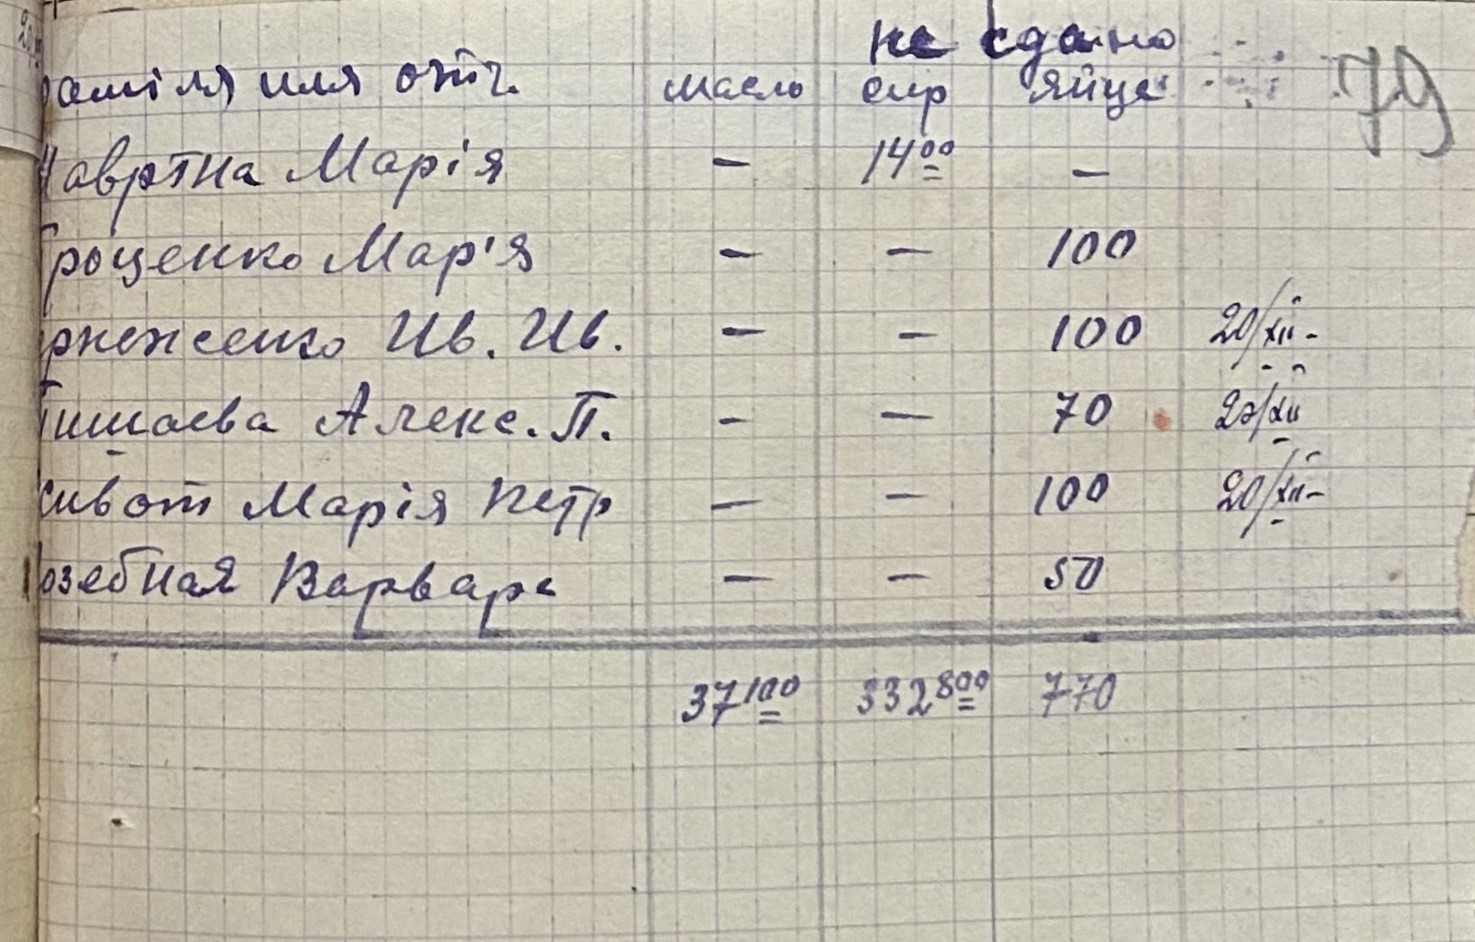 не сдано
фаміля имя отч. масло сир яйце 79
Мавртна Марія — 14⁰⁰ —
Гроценко Мар'я — — 100
Ив. Ив. — — 100 20/XII-
Тишаева Алекс. П. - — 70 20/XII
Живот Марія Петр — — 100 20/XII-
Козебная Варвара — — 50
37¹⁰⁰ 332⁸⁰⁰ 770